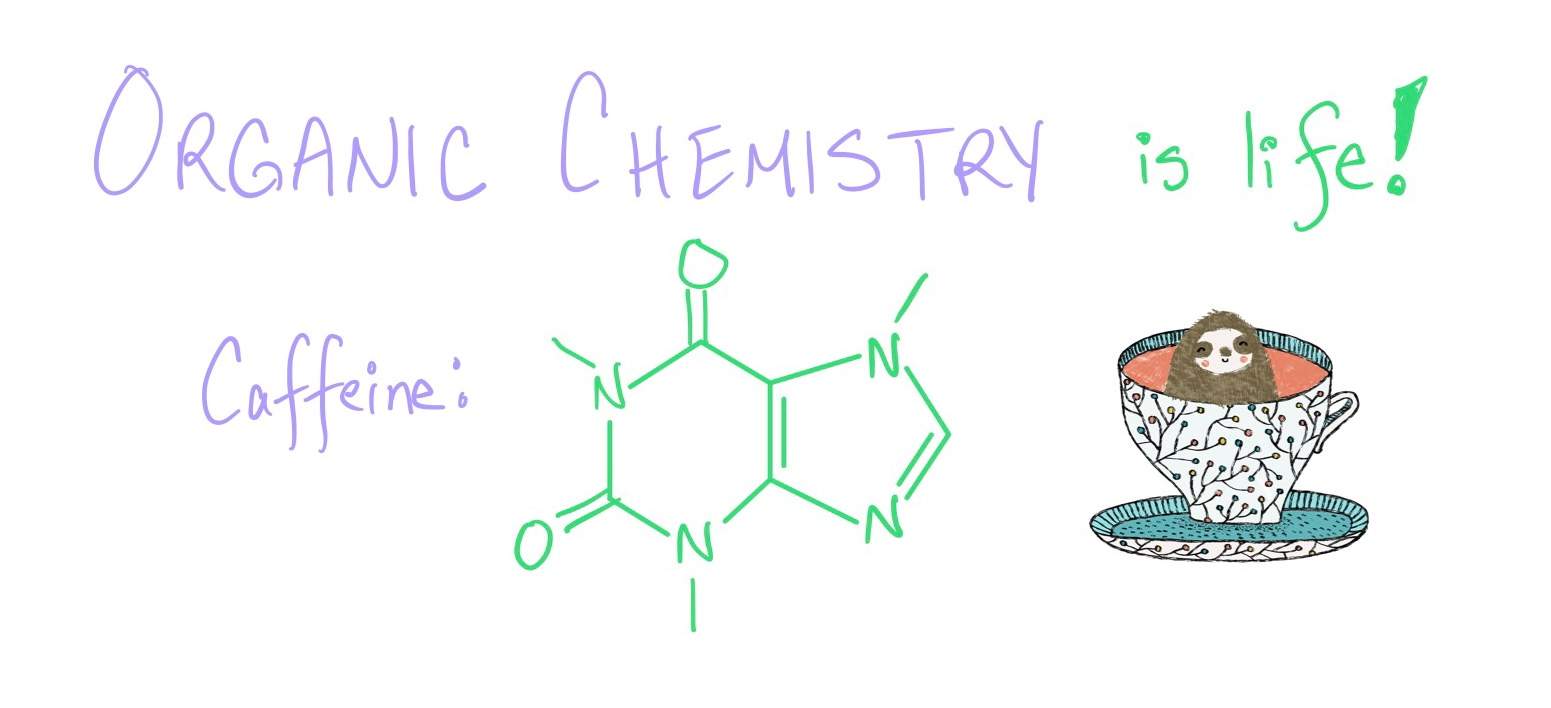 ORGANIC CHEMISTRY is life!
Caffeine:
O
N
N
O
N
N